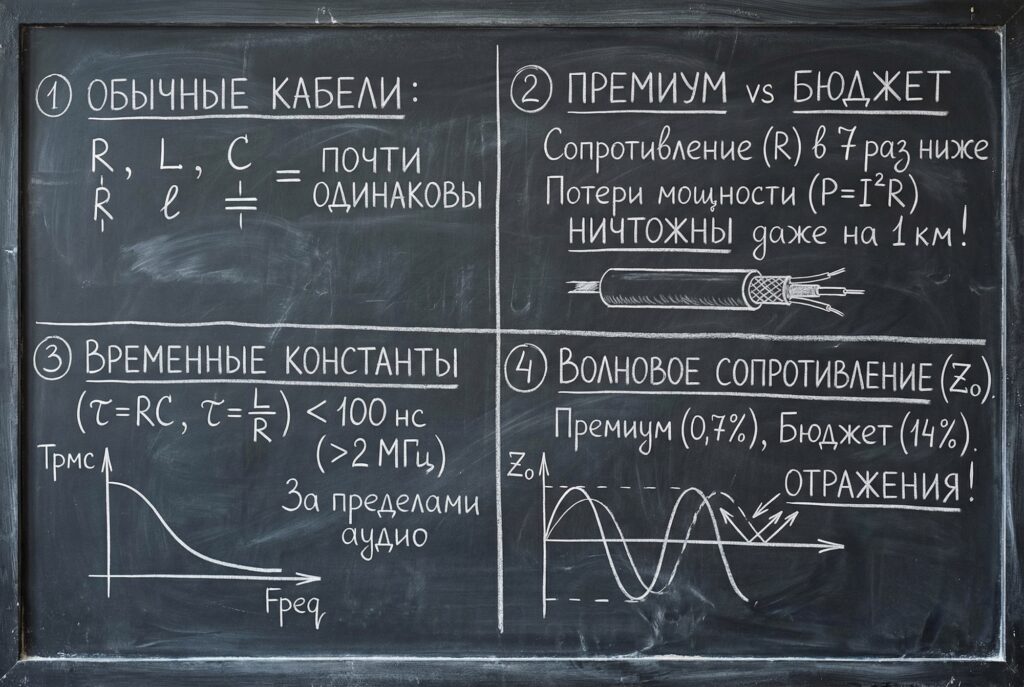 ① ОБЫЧНЫЕ КАБЕЛИ:
R, L, C = ПОЧТИ
R ℓ ОДИНАКОВЫ
② ПРЕМИУМ vs БЮДЖЕТ
Сопротивление (R) в 7 раз ниже
Потери мощности (P=I²R)
НИЧТОЖНЫ даже на 1 км!
③ ВРЕМЕННЫЕ КОНСТАНТЫ
(τ=RC, τ=L/R) < 100 нс
(>2 МГц)
За пределами
аудио
Трмс
Fреq
④ ВОЛНОВОЕ СОПРОТИВЛЕНИЕ (Z₀).
Премиум (0,7%), Бюджет (14%).
ОТРАЖЕНИЯ!
Z₀